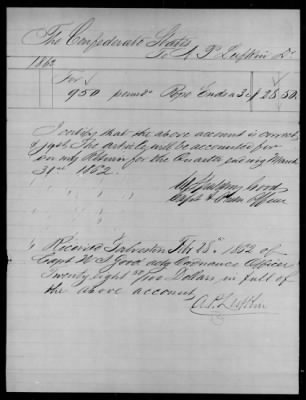 The Confederate States
To A. P. Lufkin Dr
1862
For
950 pounds Rope Ends a 3c $ 28.50
I certify that the above account is correct
& just. The articles will be accounted for
on my Return for the Quarter ending March
31st 1862.
Capt & Ord Officer
Received Galveston Feby 28th 1862 of
Capt W S Good actg Ordnance Officer
Twenty eight 50/100 Dollars in full of
the above account,
A. P. Lufkin